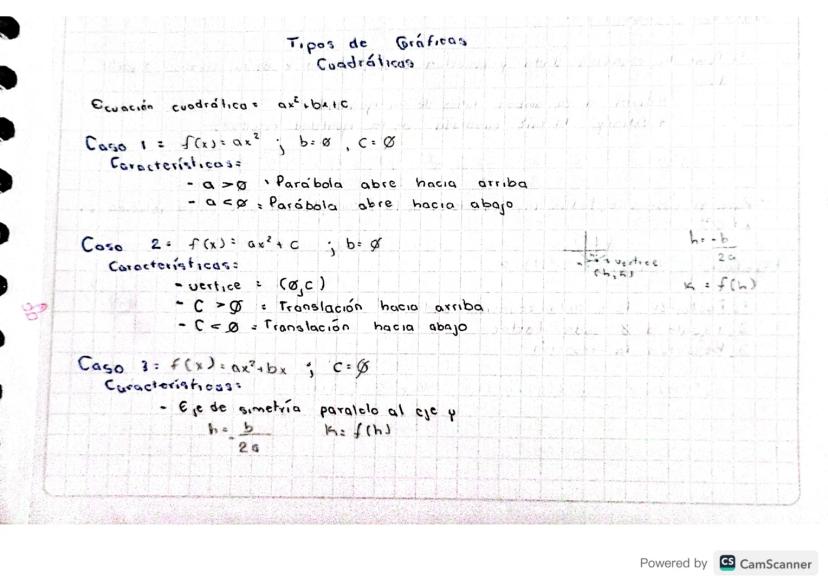 Tipos de Gráficas
Cuadráticas
Ecuación cuadrática: ax²+bx+c
Caso 1: f(x)=ax² ; b=ø , c=ø
Características:
- a>ø : Parábola abre hacia arriba
- a<ø : Parábola abre hacia abajo
Caso 2: f(x)=ax²+c ; b=ø
Características:
- vertice : (ø,c)
- C>ø : Translación hacia arriba
- C<ø : Translación hacia abajo
vertice
(h,k)
h=-b/2a
k=f(h)
Caso 3: f(x)=ax²+bx ; c=ø
Características:
- Eje de simetría paralelo al eje y
h=-b/2a k=f(h)
Powered by CS CamScanner